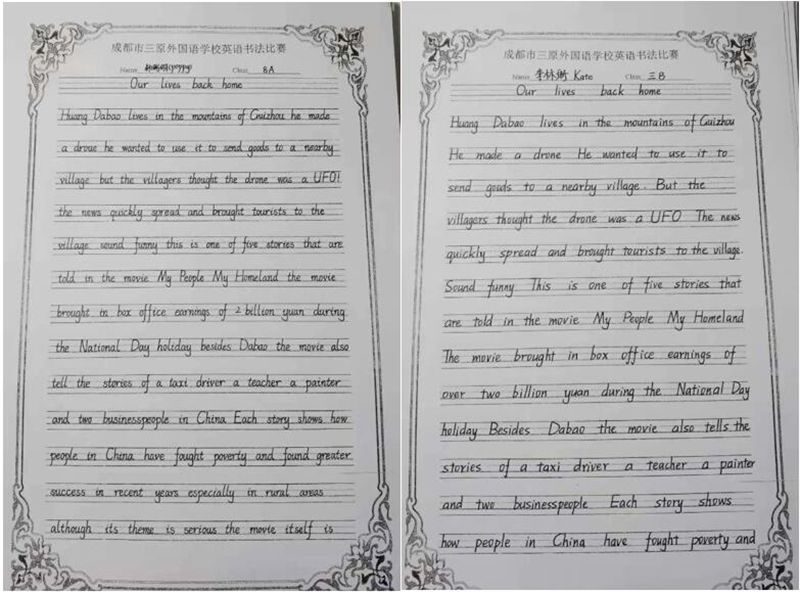 成都市三原外国语学校英语书法比赛
Name Class 8A
Our lives back home
Huang Dabao lives in the mountains of Guizhou he made
a droue he wanted to use it to send goods to a nearby
village but the villagers thought the drone was a UFO!
the news quickly spread and brought tourists to the
village sound funny this is one of five stories that are
told in the movie My People My Homeland the movie
brought in box office earnings of 2 billion yuan during
the National Day holiday besides Dabao the movie also
tell the stories of a taxi driver a teacher a painter
and two businesspeople in China Each story shows how
people in China have fought poverty and found greater
success in recent years especially in rural areas
although its theme is serious the movie itself is
成都市三原外国语学校英语书法比赛
Name 李林衡 Kate Class 三B
Our lives back home
Huang Dabao lives in the mountains of Guizhou
He made a drone He wanted to use it to
send goods to a nearby village. But the
villagers thought the drone was a UFO The news
quickly spread and brought tourists to the village.
Sound funny This is one of five stories that
are told in the movie My People My Homeland
The movie brought in box office earnings of
over two billion yuan during the National Day
holiday Besides Dabao the movie also tells the
stories of a taxi driver a teacher a painter
and two businesspeople Each story shows
how people in China have fought poverty and